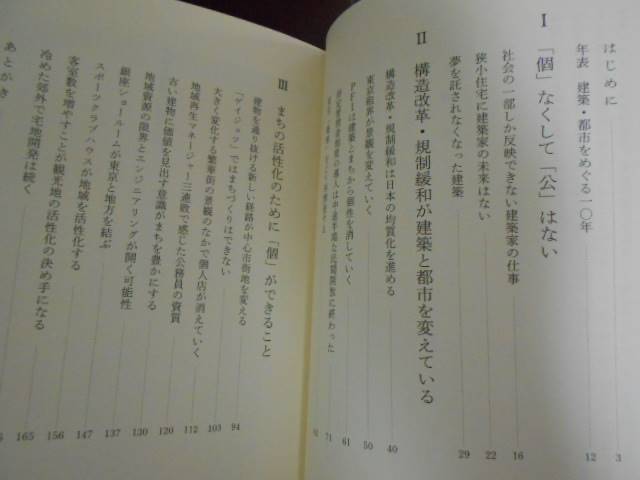 はじめに 3
年表 建築・都市をめぐる一〇年 12
Ⅰ 「個」なくして「公」はない
社会の一部しか反映できない建築家の仕事 16
狭小住宅に建築家の未来はない 22
夢を託されなくなった建築 29
Ⅱ 構造改革・規制緩和が建築と都市を変えている
構造改革・規制緩和は日本の均質化を進める 40
東京租界が景観を変えていく 50
PFIは建築とまちから個性を消していく 61
71
Ⅲ まちの活性化のために「個」ができること
建物を通り抜ける新しい経路が中心市街地を変える 94
「ゲイジュツ」ではまちづくりはできない 103
大きく変化する繁華街の景観のなかで個人店が消えていく 112
地域再生マネージャー三連敗で感じた公務員の資質 120
古い建物に価値を見出す意識がまちを豊かにする 130
地域資源の限界とエンジニアリングが開く可能性 137
銀座ショールームが東京と地方を結ぶ 147
スポーツクラブハウスが地域を活性化する 156
客室数を増やすことが観光地の活性化の決め手になる 165
冷めた郊外で宅地開発は続く
あとがき